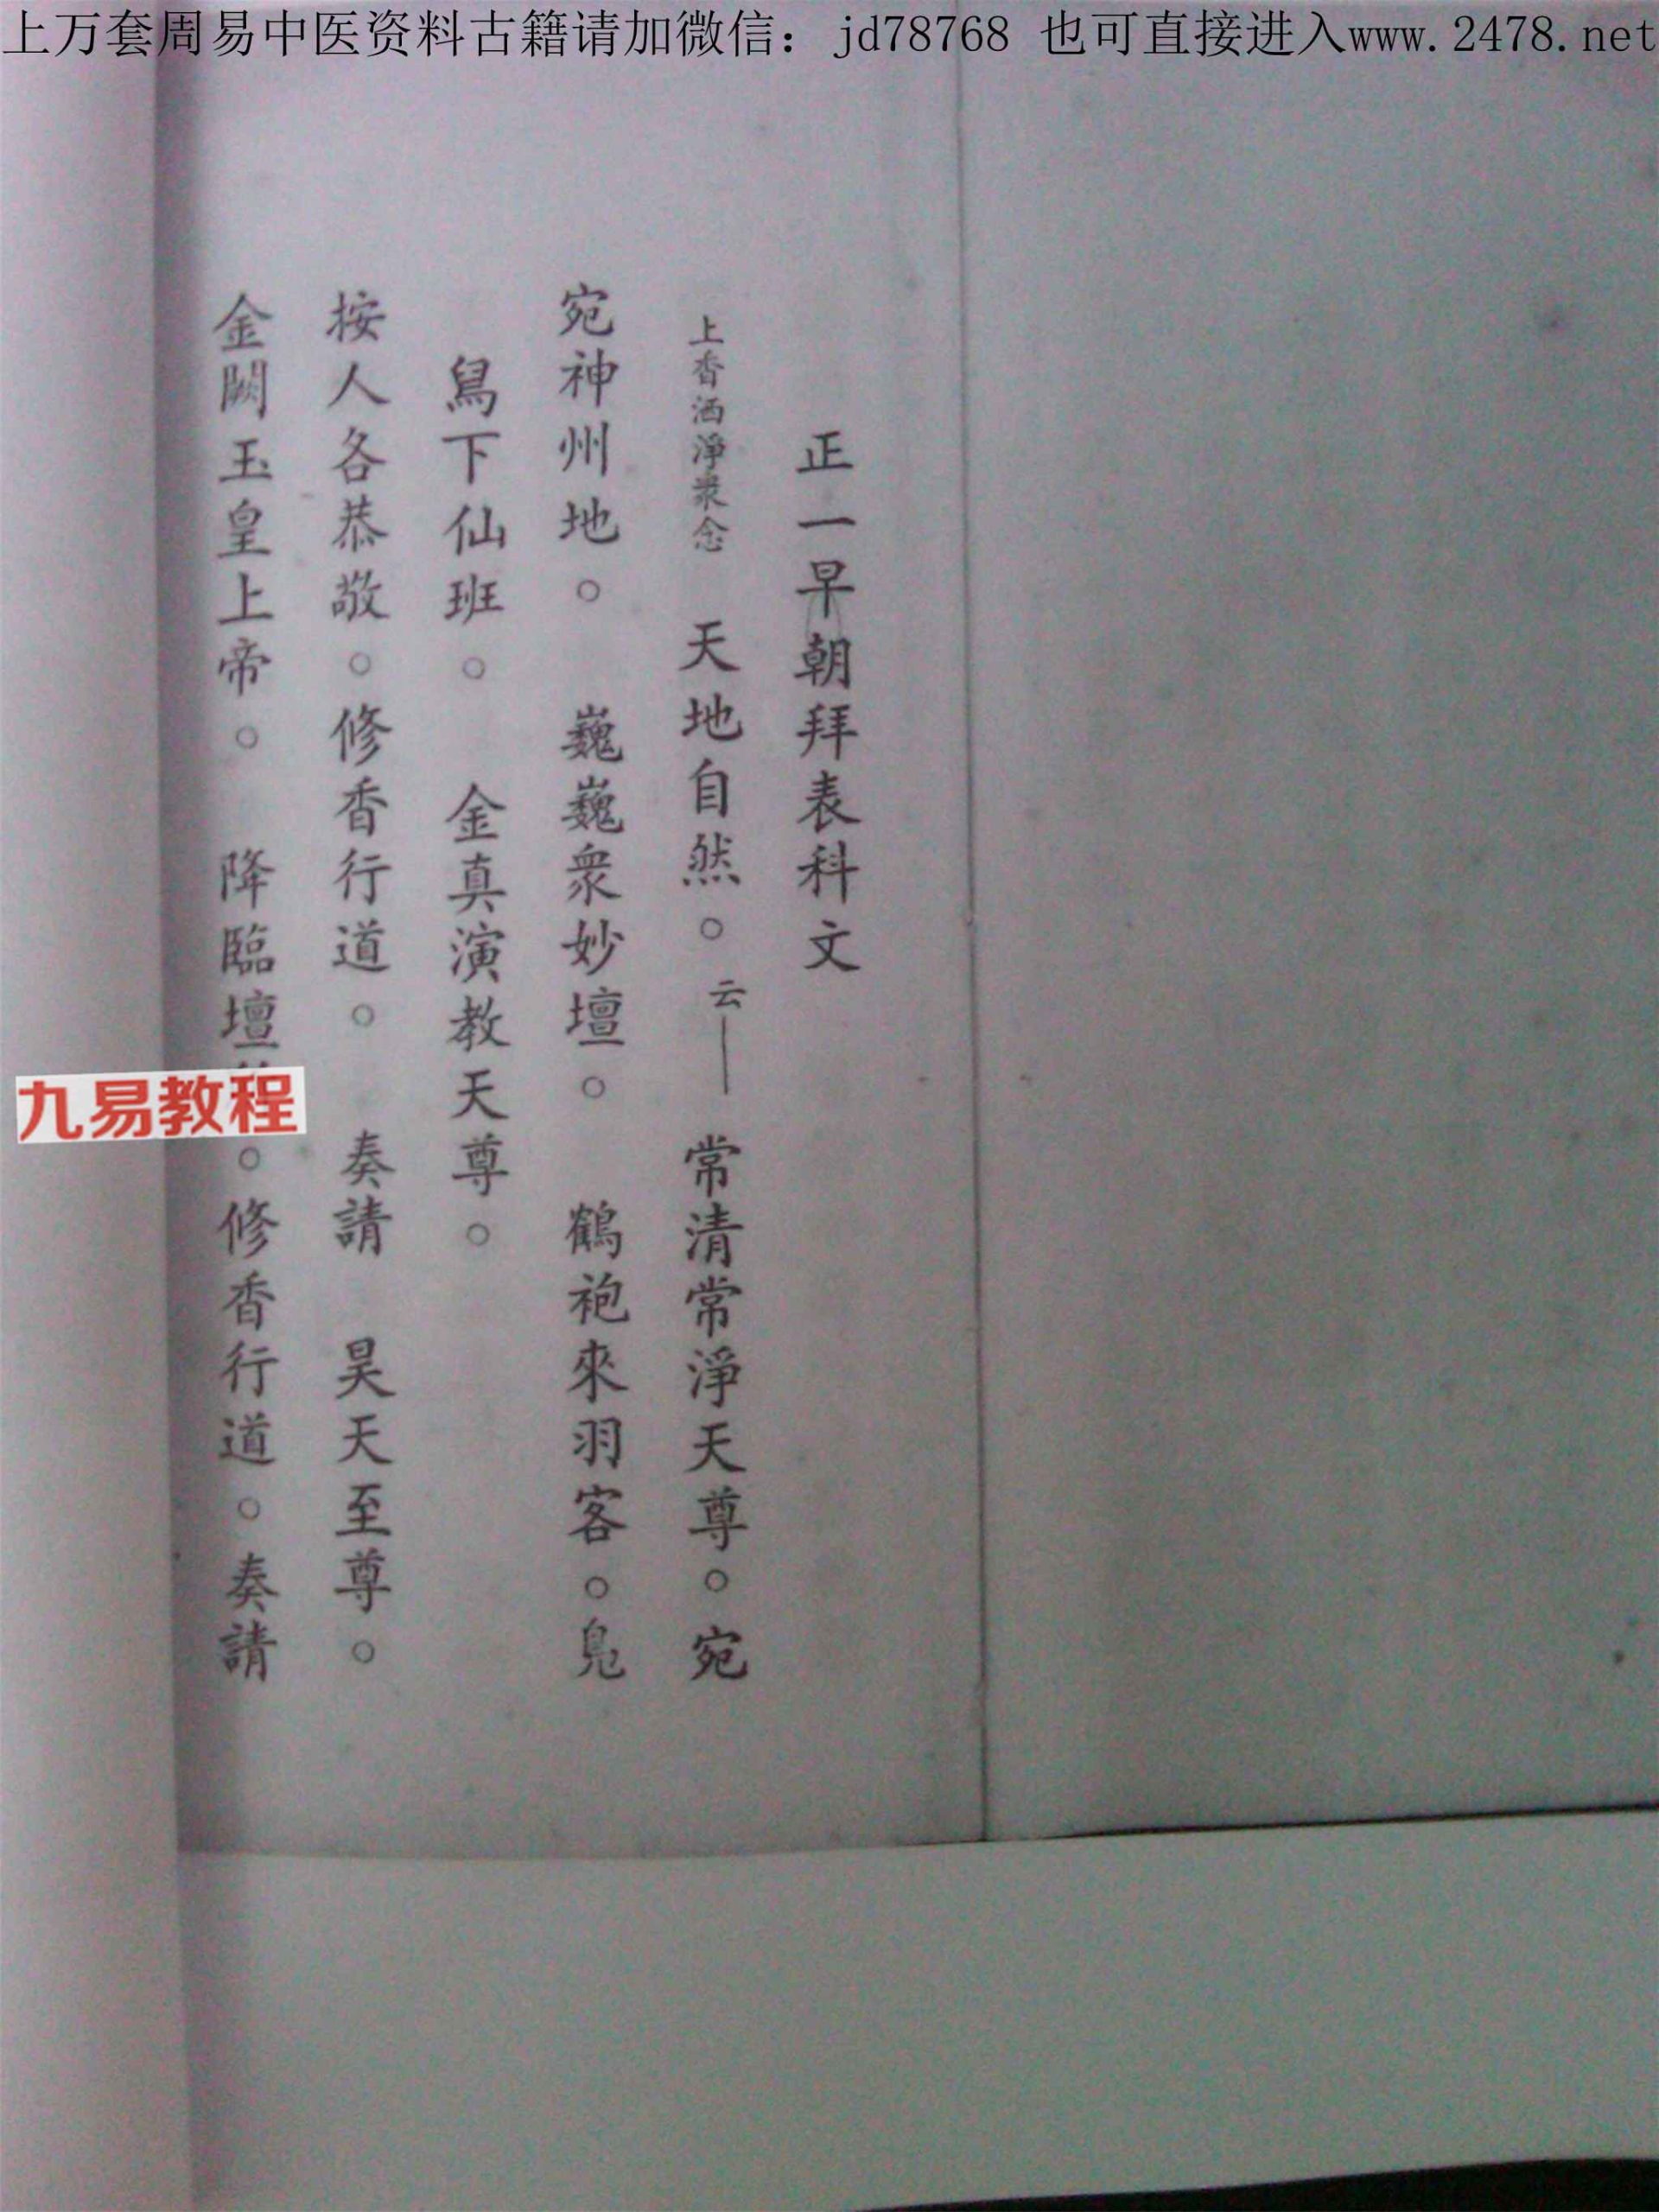 上万套周易中医资料古籍请加微信：jd78768 也可直接进入www.2478.net
正一早朝拜表科文
上香洒淨衆念 天地自然。云—— 常清常淨天尊。宛
宛神州地。 巍巍衆妙壇。 鶴袍來羽客。鳬
舄下仙班。 金真演教天尊。
按人各恭敬。修香行道。 奏請 昊天至尊。
金闕玉皇上帝。 降臨壇 。修香行道。奏請
九易教程